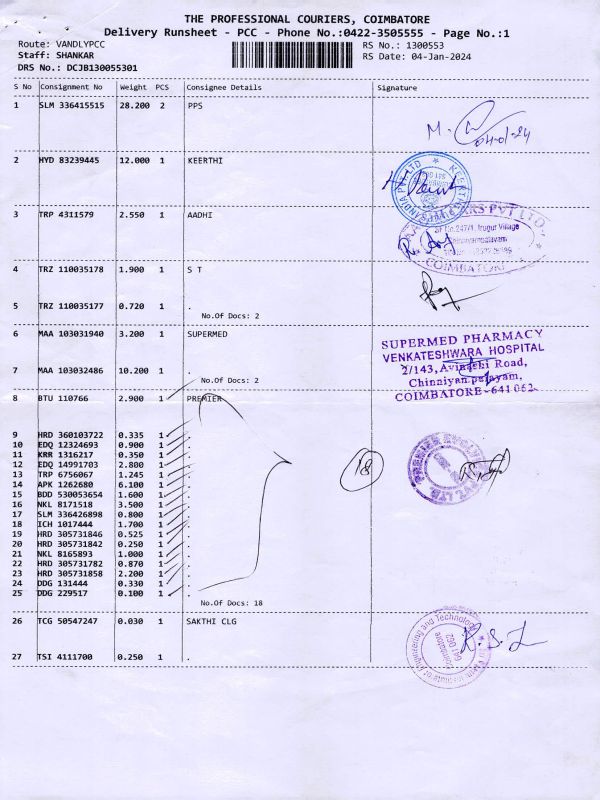 THE PROFESSIONAL COURIERS, COIMBATORE
Delivery Runsheet - PCC - Phone No.:0422-3505555 - Page No.:1
Route: VANDLYPCC RS No.: 1300553
Staff: SHANKAR RS Date: 04-Jan-2024
DRS No.: DCJB130055301
S No Consignment No Weight PCS Consignee Details Signature
1 SLM 336415515 28.200 2 PPS
M. 04-01-24
2 HYD 83239445 12.000 1 KEERTHI
3 TRP 4311579 2.550 1 AADHI
PVT LTD.
SF No.247/1, Irugur Village
COIMBATORE
4 TRZ 110035178 1.900 1 S T
5 TRZ 110035177 0.720 1 .
No.Of Docs: 2
6 MAA 103031940 3.200 1 SUPERMED
SUPERMED PHARMACY
VENKATESHWARA HOSPITAL
2/143, Avinashi Road,
Chinniyampalayam,
COIMBATORE-641 062
7 MAA 103032486 10.200 1 .
No.Of Docs: 2
8 BTU 110766 2.900 1 PREMIER
9 HRD 360103722 0.335 1 .
10 EDQ 12324693 0.900 1 .
11 KRR 1316217 0.350 1 .
12 EDQ 14991703 2.800 1 .
13 TRP 6756067 1.245 1 .
14 APK 1262680 6.100 1 .
15 BDD 530053654 1.600 1 .
16 NKL 8171518 3.500 1 .
17 SLM 336426898 0.800 1 .
18 ICH 1017444 1.700 1 .
19 HRD 305731846 0.525 1 .
20 HRD 305731842 0.250 1 .
21 NKL 8165893 1.000 1 .
22 HRD 305731782 0.870 1 .
23 HRD 305731858 2.200 1 .
24 DDG 131444 0.330 1 .
25 DDG 229517 0.100 1 .
18
PREMIER EVOLVICS PVT. LTD.
No.Of Docs: 18
26 TCG 50547247 0.030 1 SAKTHI CLG
Institute of Engineering and Technology
Coimbatore
641 062
R.S.L
27 TSI 4111700 0.250 1 .